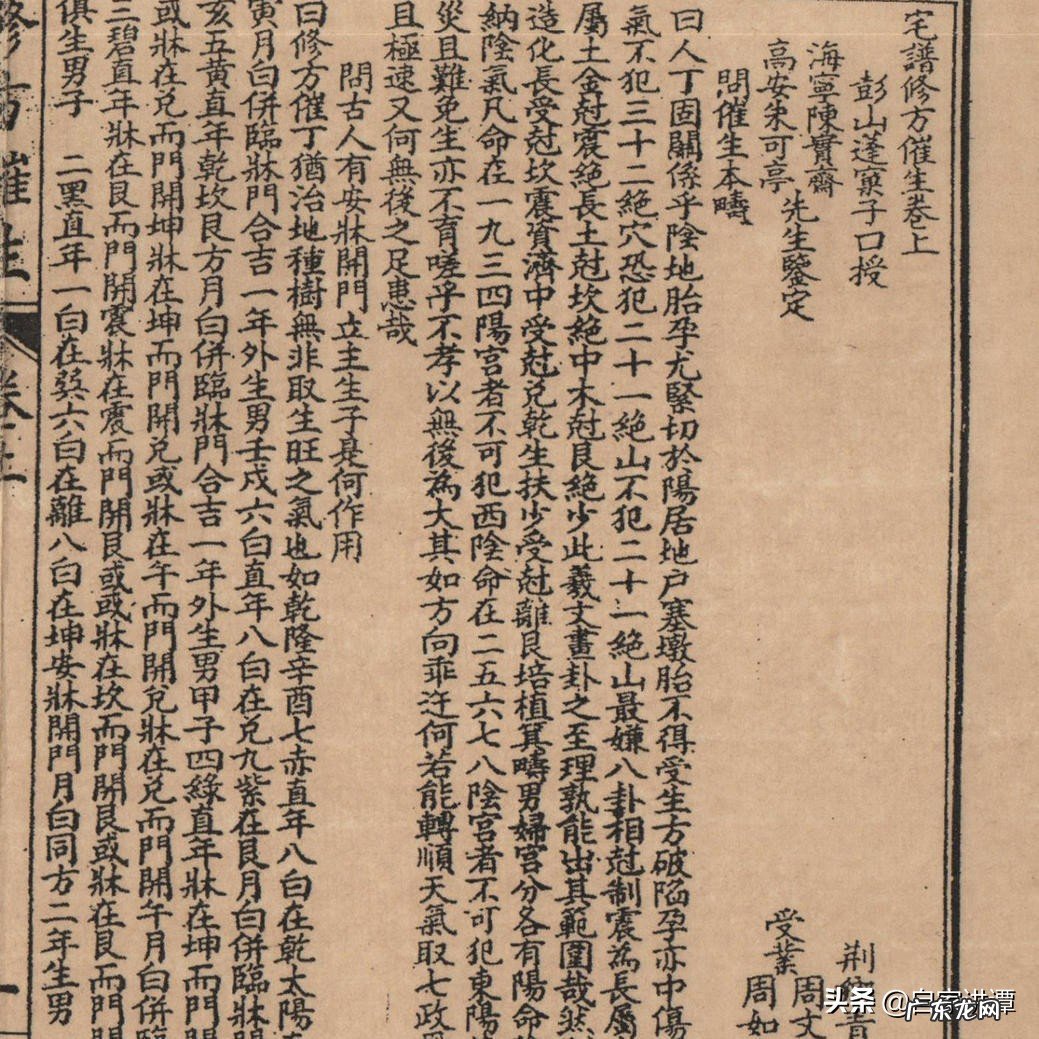 宅譜修方催生卷上
彭山蓬寰子口授
海寧陳實齋
高安朱可亭
先生鑒定
荆
受業
周文
周如
問催生本疇
曰人丁固關係乎陰地胎孕尤緊切於陽居地户塞墩胎不得受生方破陷孕亦中傷
氣不犯三十二絶穴恐犯二十一絶山不犯二十一絶山最嫌八卦相尅制震為長屬
屬土金尅震絶長土尅坎絶中木尅艮絶少此羲文畫卦之至理孰能出其範圍哉然
造化長受尅坎震資濟中受尅兑乾生扶少受尅離艮培植箕疇男婦宮分各有陽命
納陰氣凡命在一九三四陽宮者不可犯西陰命在二五六七八陰宮者不可犯東陽
災且難免生亦不育嗟乎不孝以無後為大其如方向乖迕何若能轉順天氣取七政
且極速又何無後之足患哉
問古人有安牀開門立主生子是何作用
曰修方催丁猶治地種樹無非取生旺之氣也如乾隆辛酉七赤直年八白在乾太陽
寅月白併臨牀門合吉一年外生男壬戌六白直年八白在兑九紫在艮月白併臨牀
亥五黄直年乾坎艮方月白併臨牀門合吉一年外生男甲子四綠直年牀在坤而門
或牀在兑而門開坤牀在坤而門開兑或牀在午而門開兑牀在兑而門開午月白併臨
三碧直年牀在艮而門開震牀在震而門開艮或牀在坎而門開艮或牀在艮而門
俱生男子 二黑直年一白在巽六白在離八白在坤安牀開門月白同方二年生男
修方催生 卷上
头条 @白家讲谭
广东龙网